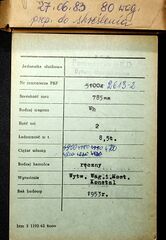 27.06.89 80 wag.
prep. do skreślenia
Jednostka służbowa
Nr rozrozowu PKP 5100z 2613-2
Szerokość toru 785mm
Rodzaj wagonu Wh
Ilość osi 2
Ładowność w t. 8,5t.
Ciężar własny
Rodzaj hamulca ręczny
Wytwórnia Wytw. Wag. i Most.
Konstal
Rok budowy 1953r.